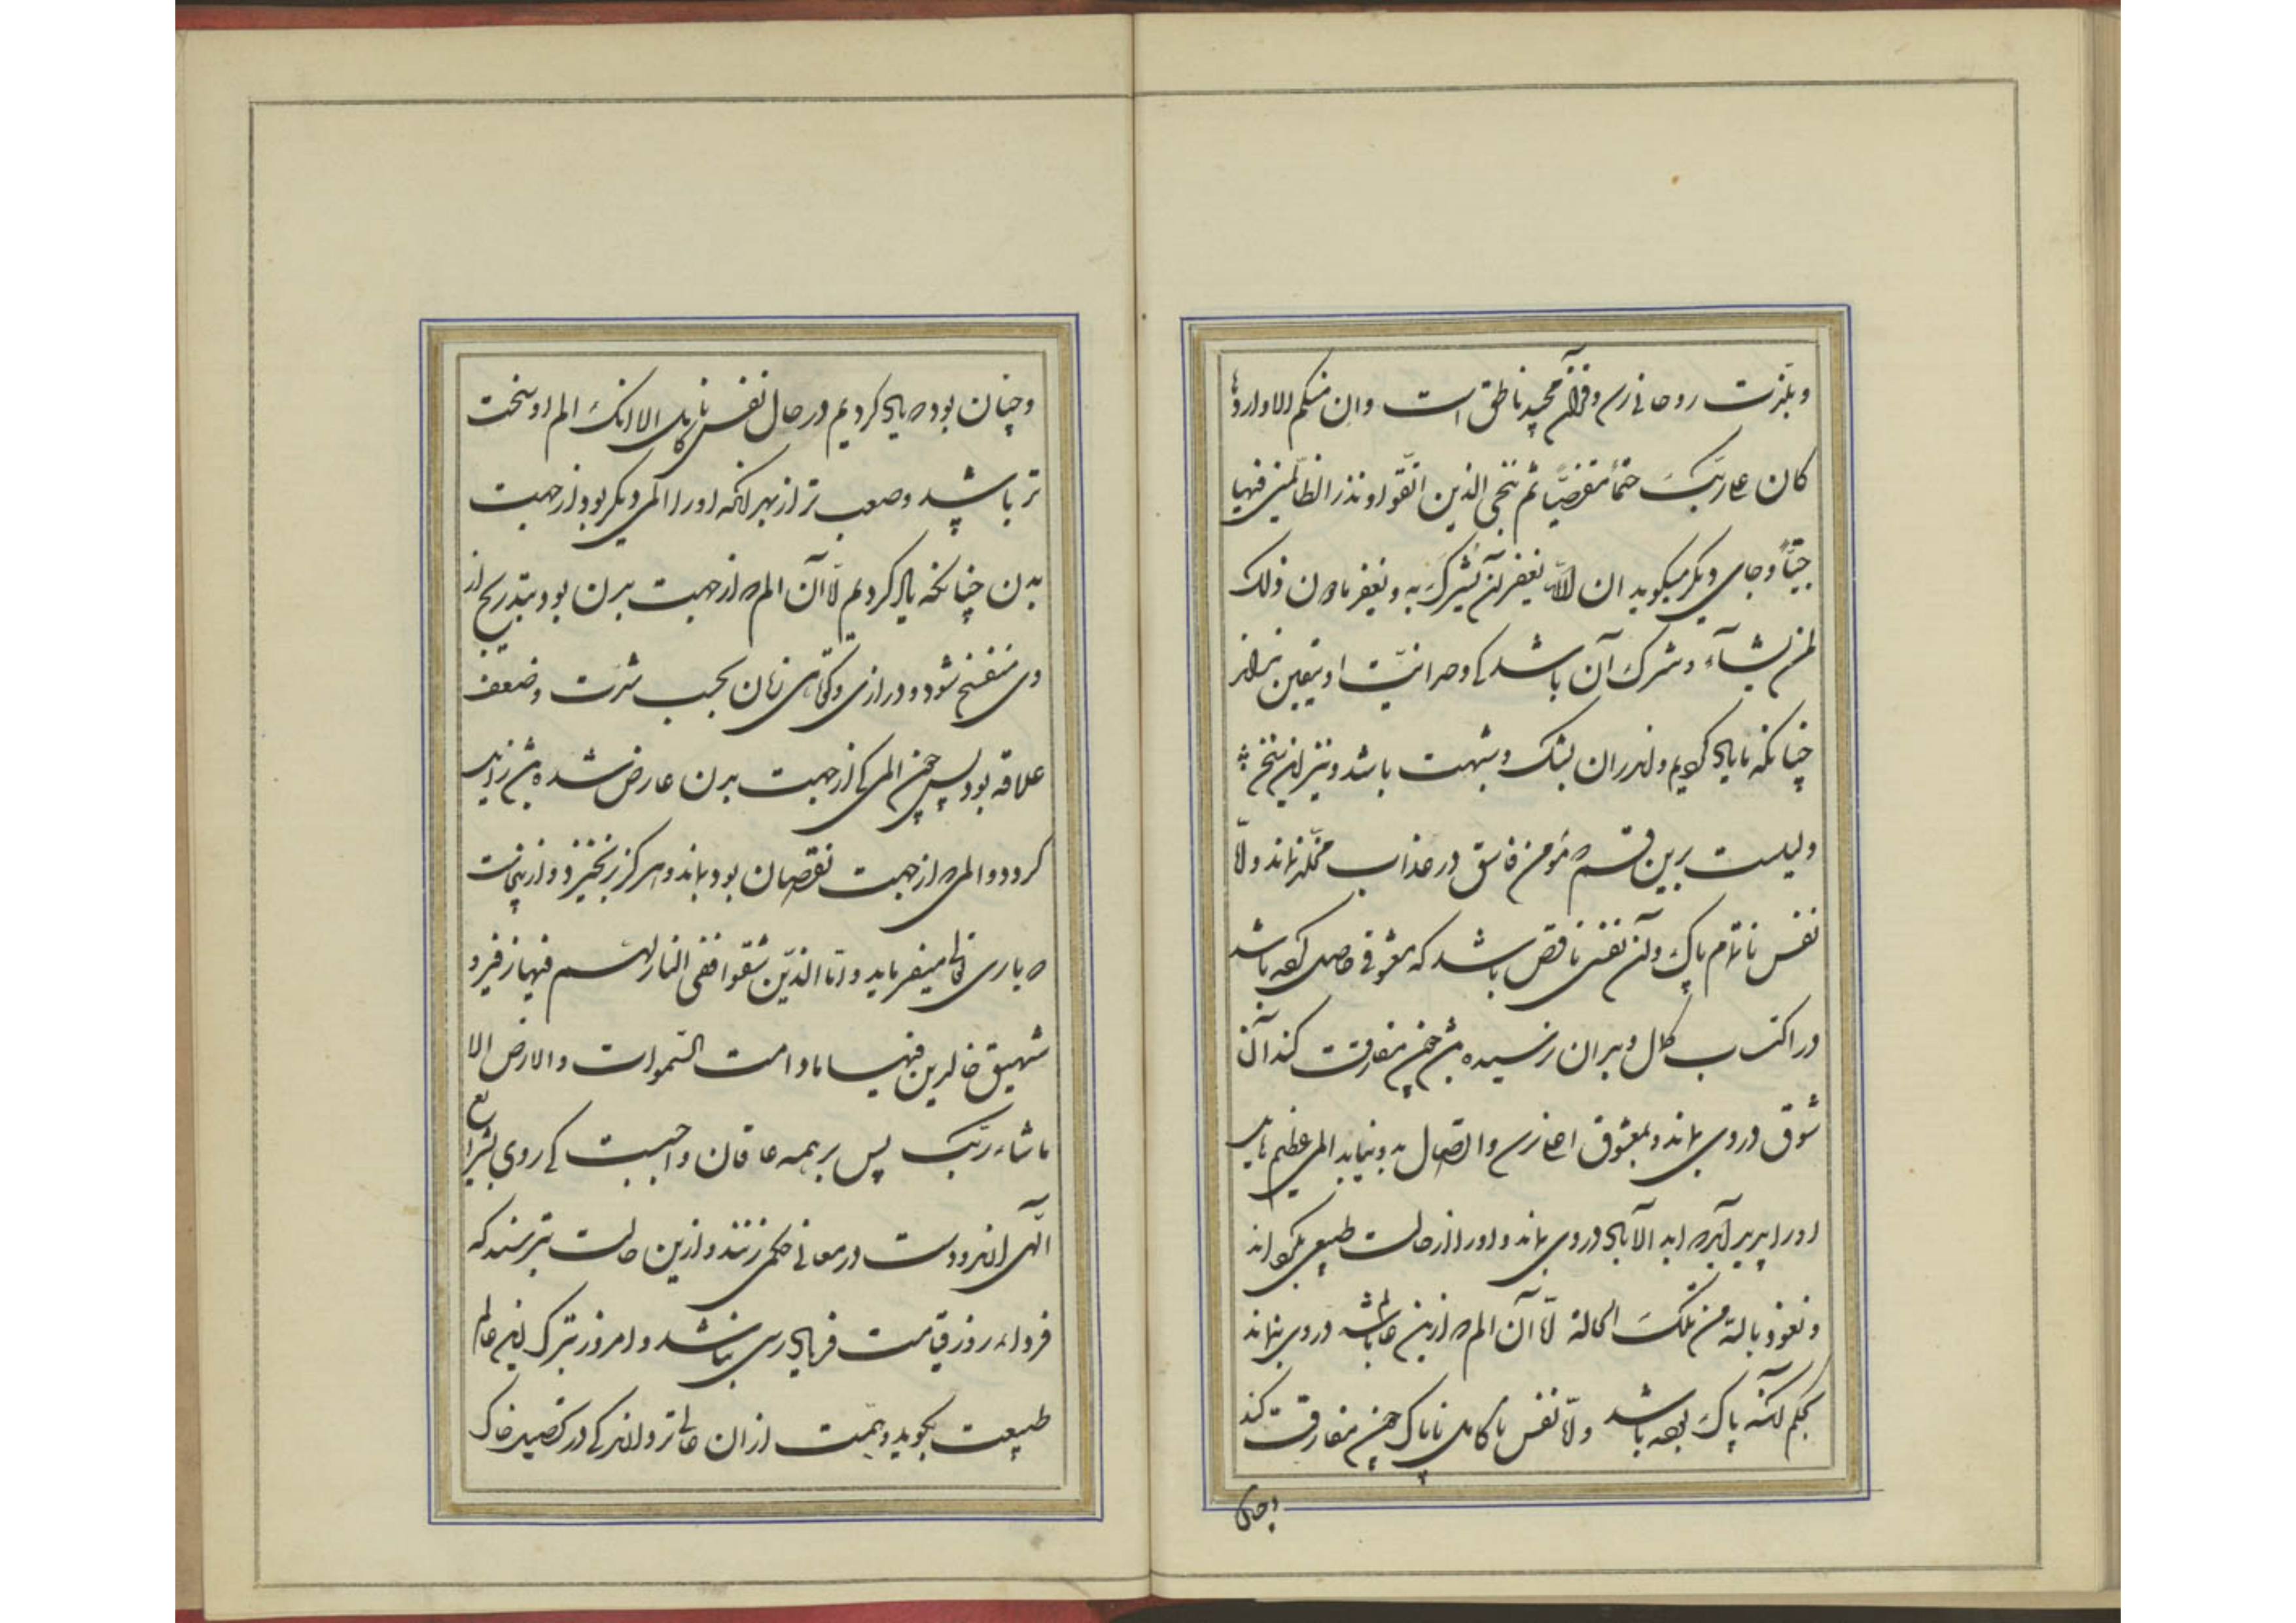 و بلذت روحانی رسد و قرآن مجید ناطق است وان منکم الا واردها
کان علی ربک حتماً مقضیاً ثم ننجی الذین اتقوا و نذر الظالمین فیها
جثیاً و جای دیگر میگوید ان الله لا یغفر ان یشرک به و یغفر مادون ذلک
لمن یشآء و شرک آن باشد که وحدانیت او بیقین نداند
چنانکه ما یاد کردیم و اندر ان بشک و شبهت باشد و نیز این سخن
دلیلست برین قسم که مؤمن فاسق در عذاب مخلد نماند و امّا
نفس ناتمام پاک و آن نفس ناقص باشد که شوقی حاصل کرده باشد
در اکتساب کمال و بدان نرسیده باشد چون مفارقت کند آن
شوق در وی بماند و بمعشوق اعلی نرسد و اتصال بدو نیابد المی عظیم
او را پدید آید که ابد الآباد در وی بماند و او را از حالت طبیعی بگرداند
و نعوذ بالله من تلک الحالة امّا آن الم که ازین عالم باشد در وی نماند
بحکم آنکه پاک بوده باشد و امّا نفس ناکامل ناپاک چون مفارقت کند
و چنان
و چنان بود که یاد کردیم در حال نفس ناکامل الا آنک الم او سخت
تر باشد و صعب تر از بهر آنکه او را المی دیگر بود از جهت
بدن چنانکه یاد کردیم امّا آن الم که از جهت بدن بود بتدریج از
وی منفسخ شود و درازی و کوتاهی زمان بحسب شدت و ضعف
علاقه بود پس چون المی که از جهت بدن عارض شده باشد زایل
گردد و المی که از جهت نقصان بود بماند و هرگز برنخیزد و ازینجاست
که باری تعالی میفرماید و امّا الذین شقوا ففی النار لهم فیها زفیر و
شهیق خالدین فیها مادامت السموات والارض الا
ماشاء ربک پس بر همه عاقلان واجبست که روی بشرایع
الٓهی آرند و دست در معانی حکمی زنند و ازین حالت بترسند که
فردا که روز قیامت فریاد رسی نباشد و امروز بترک این عالم
طبیعت بگوید و همت از ان عالی تر دارند که در حضیض خاک